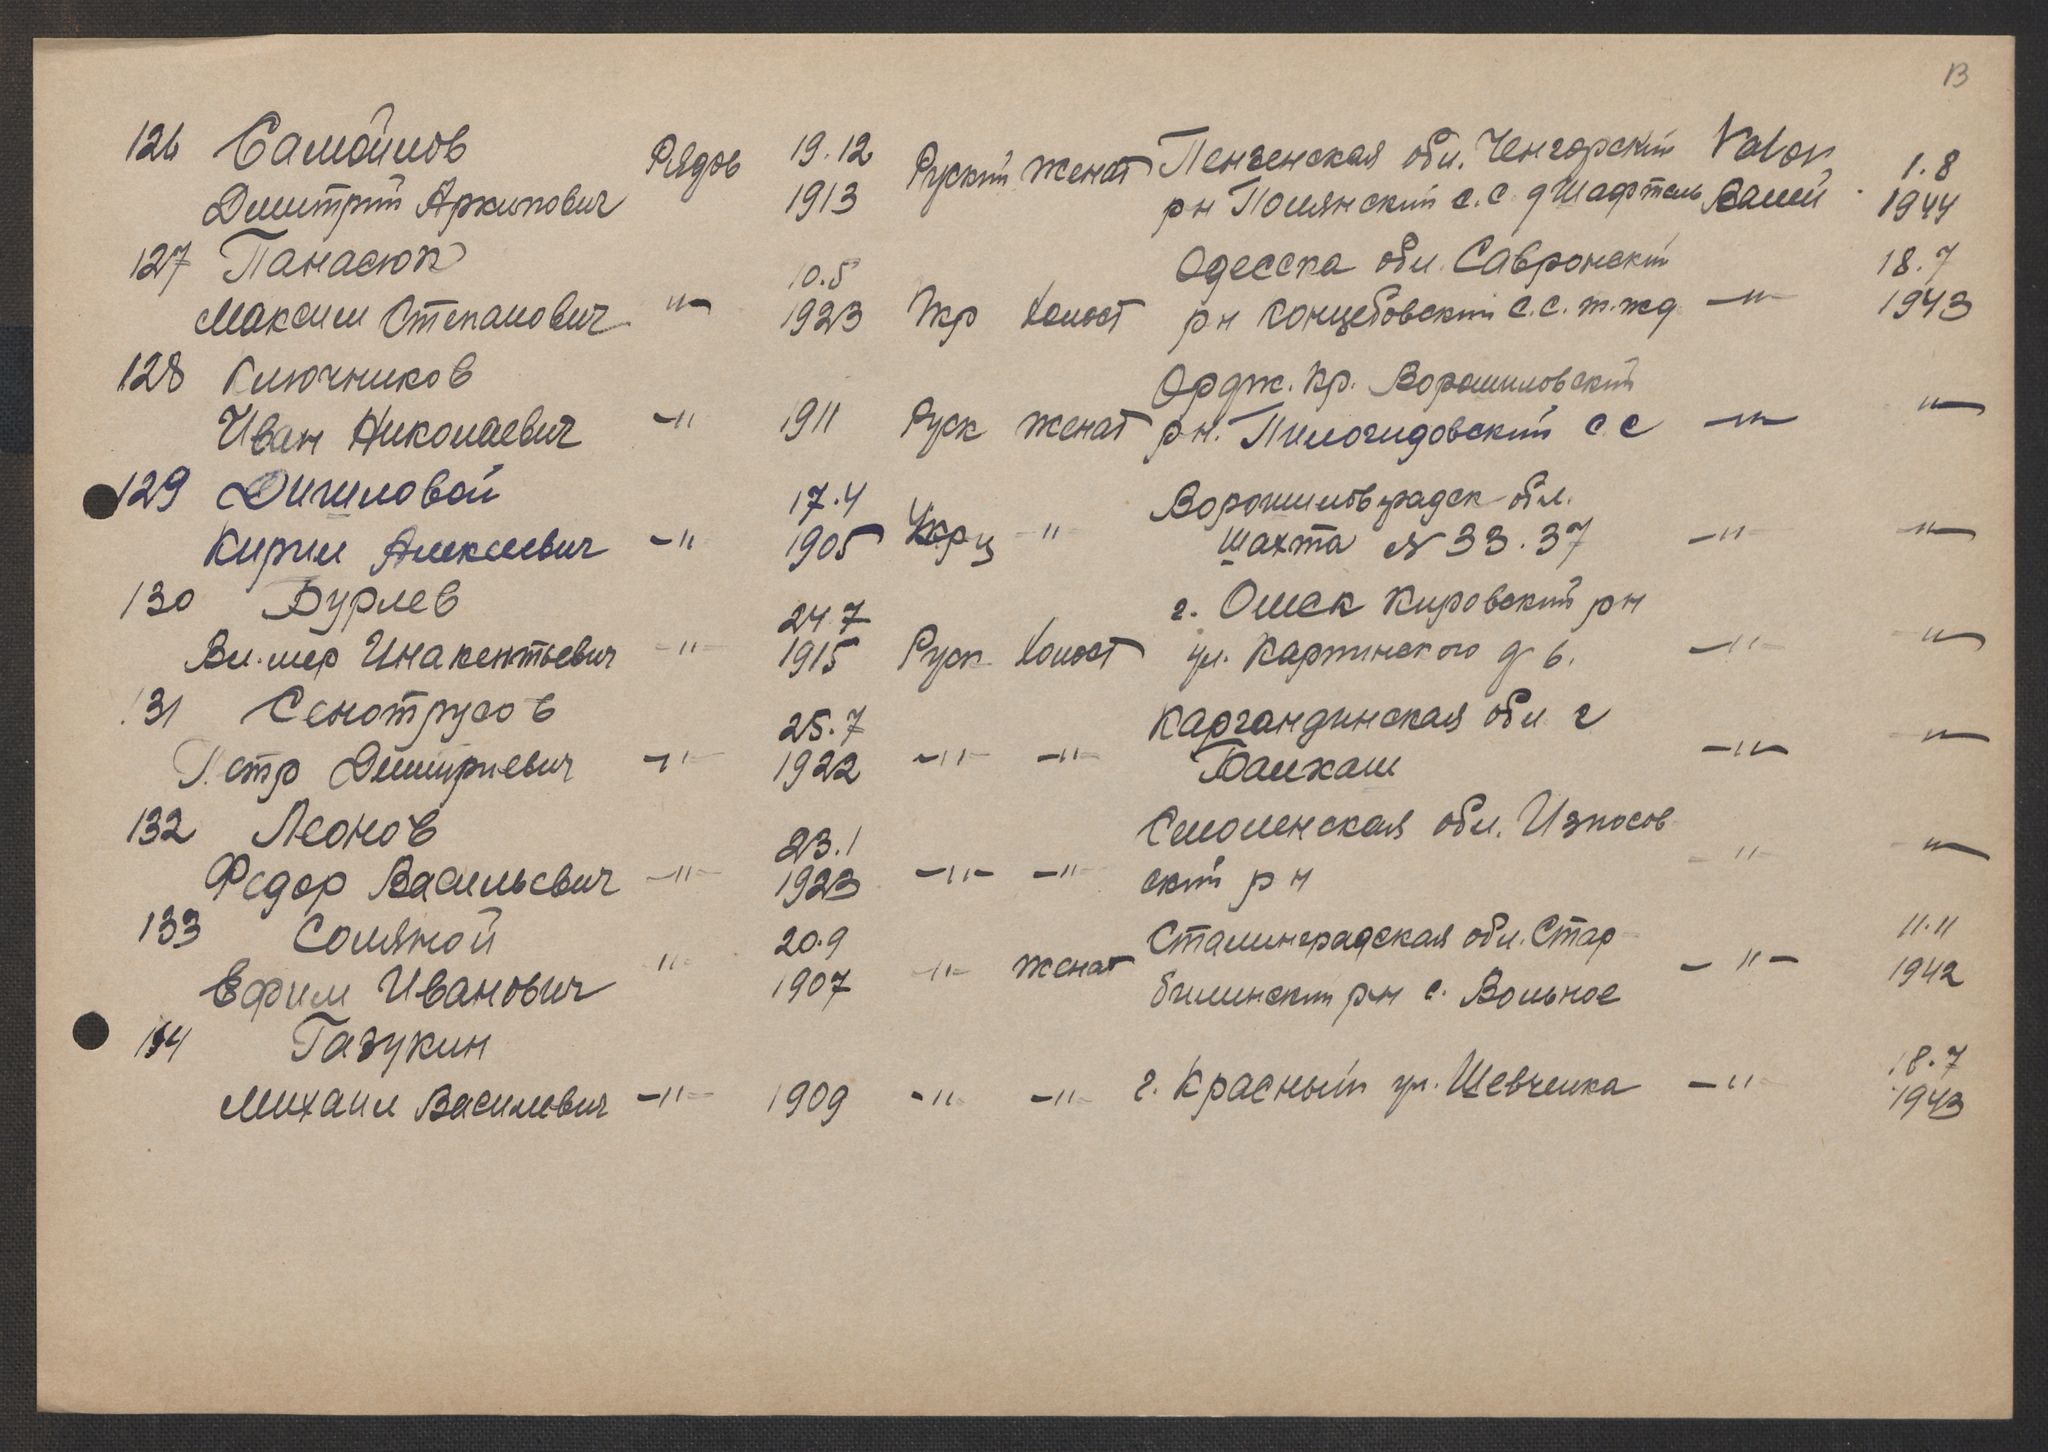 B
126 Самойлов Рядов 19.12 Руский женат Пензенская обл. Ченгарский Vator 1.8
Дмитрий Архипович 1913 рн Полянский с.с. д Шафтель Валей 1944
127 Панасюк 10.5 Одесска обл. Савронский 18.7
Максим Степанович -"- 1923 Укр Холост рн Концебовский с.с. ж.жд -"- 1943
128 Ключников Ордж. Кр. Ворошиловский
Иван Николаевич -"- 1911 Руск женат рн. с.с -"- -"-
129 17.4 Ворошиловградск обл.
Кирил Алексеевич -"- 1905 Укрц -"- шахта № 33.37 -"- -"-
130 Бурлев 24.7 г. Омск Кировский рн
Вл.мер Инакентьевич -"- 1915 Руск Холост ул. Карпинского д 6. -"- -"-
131 Сенотрусов 25.7 Каргандинская обл г
Петр Дмитриевич -"- 1922 -"- -"- Балхаш -"- -"-
132 Леонов 23.1 Смоленская обл. Износов
Федор Васильевич -"- 1923 -"- -"- ский рн -"- -"-
133 Соляной 20.9 Сталинградская обл. Стар 11.11
Ефим Иванович -"- 1907 -"- женат билинский рн с. Вольное -"- 1942
134 Газукин 18.7
Михаил Василович -"- 1909 -"- -"- г. Красный ул. Шевченка -"- 1943